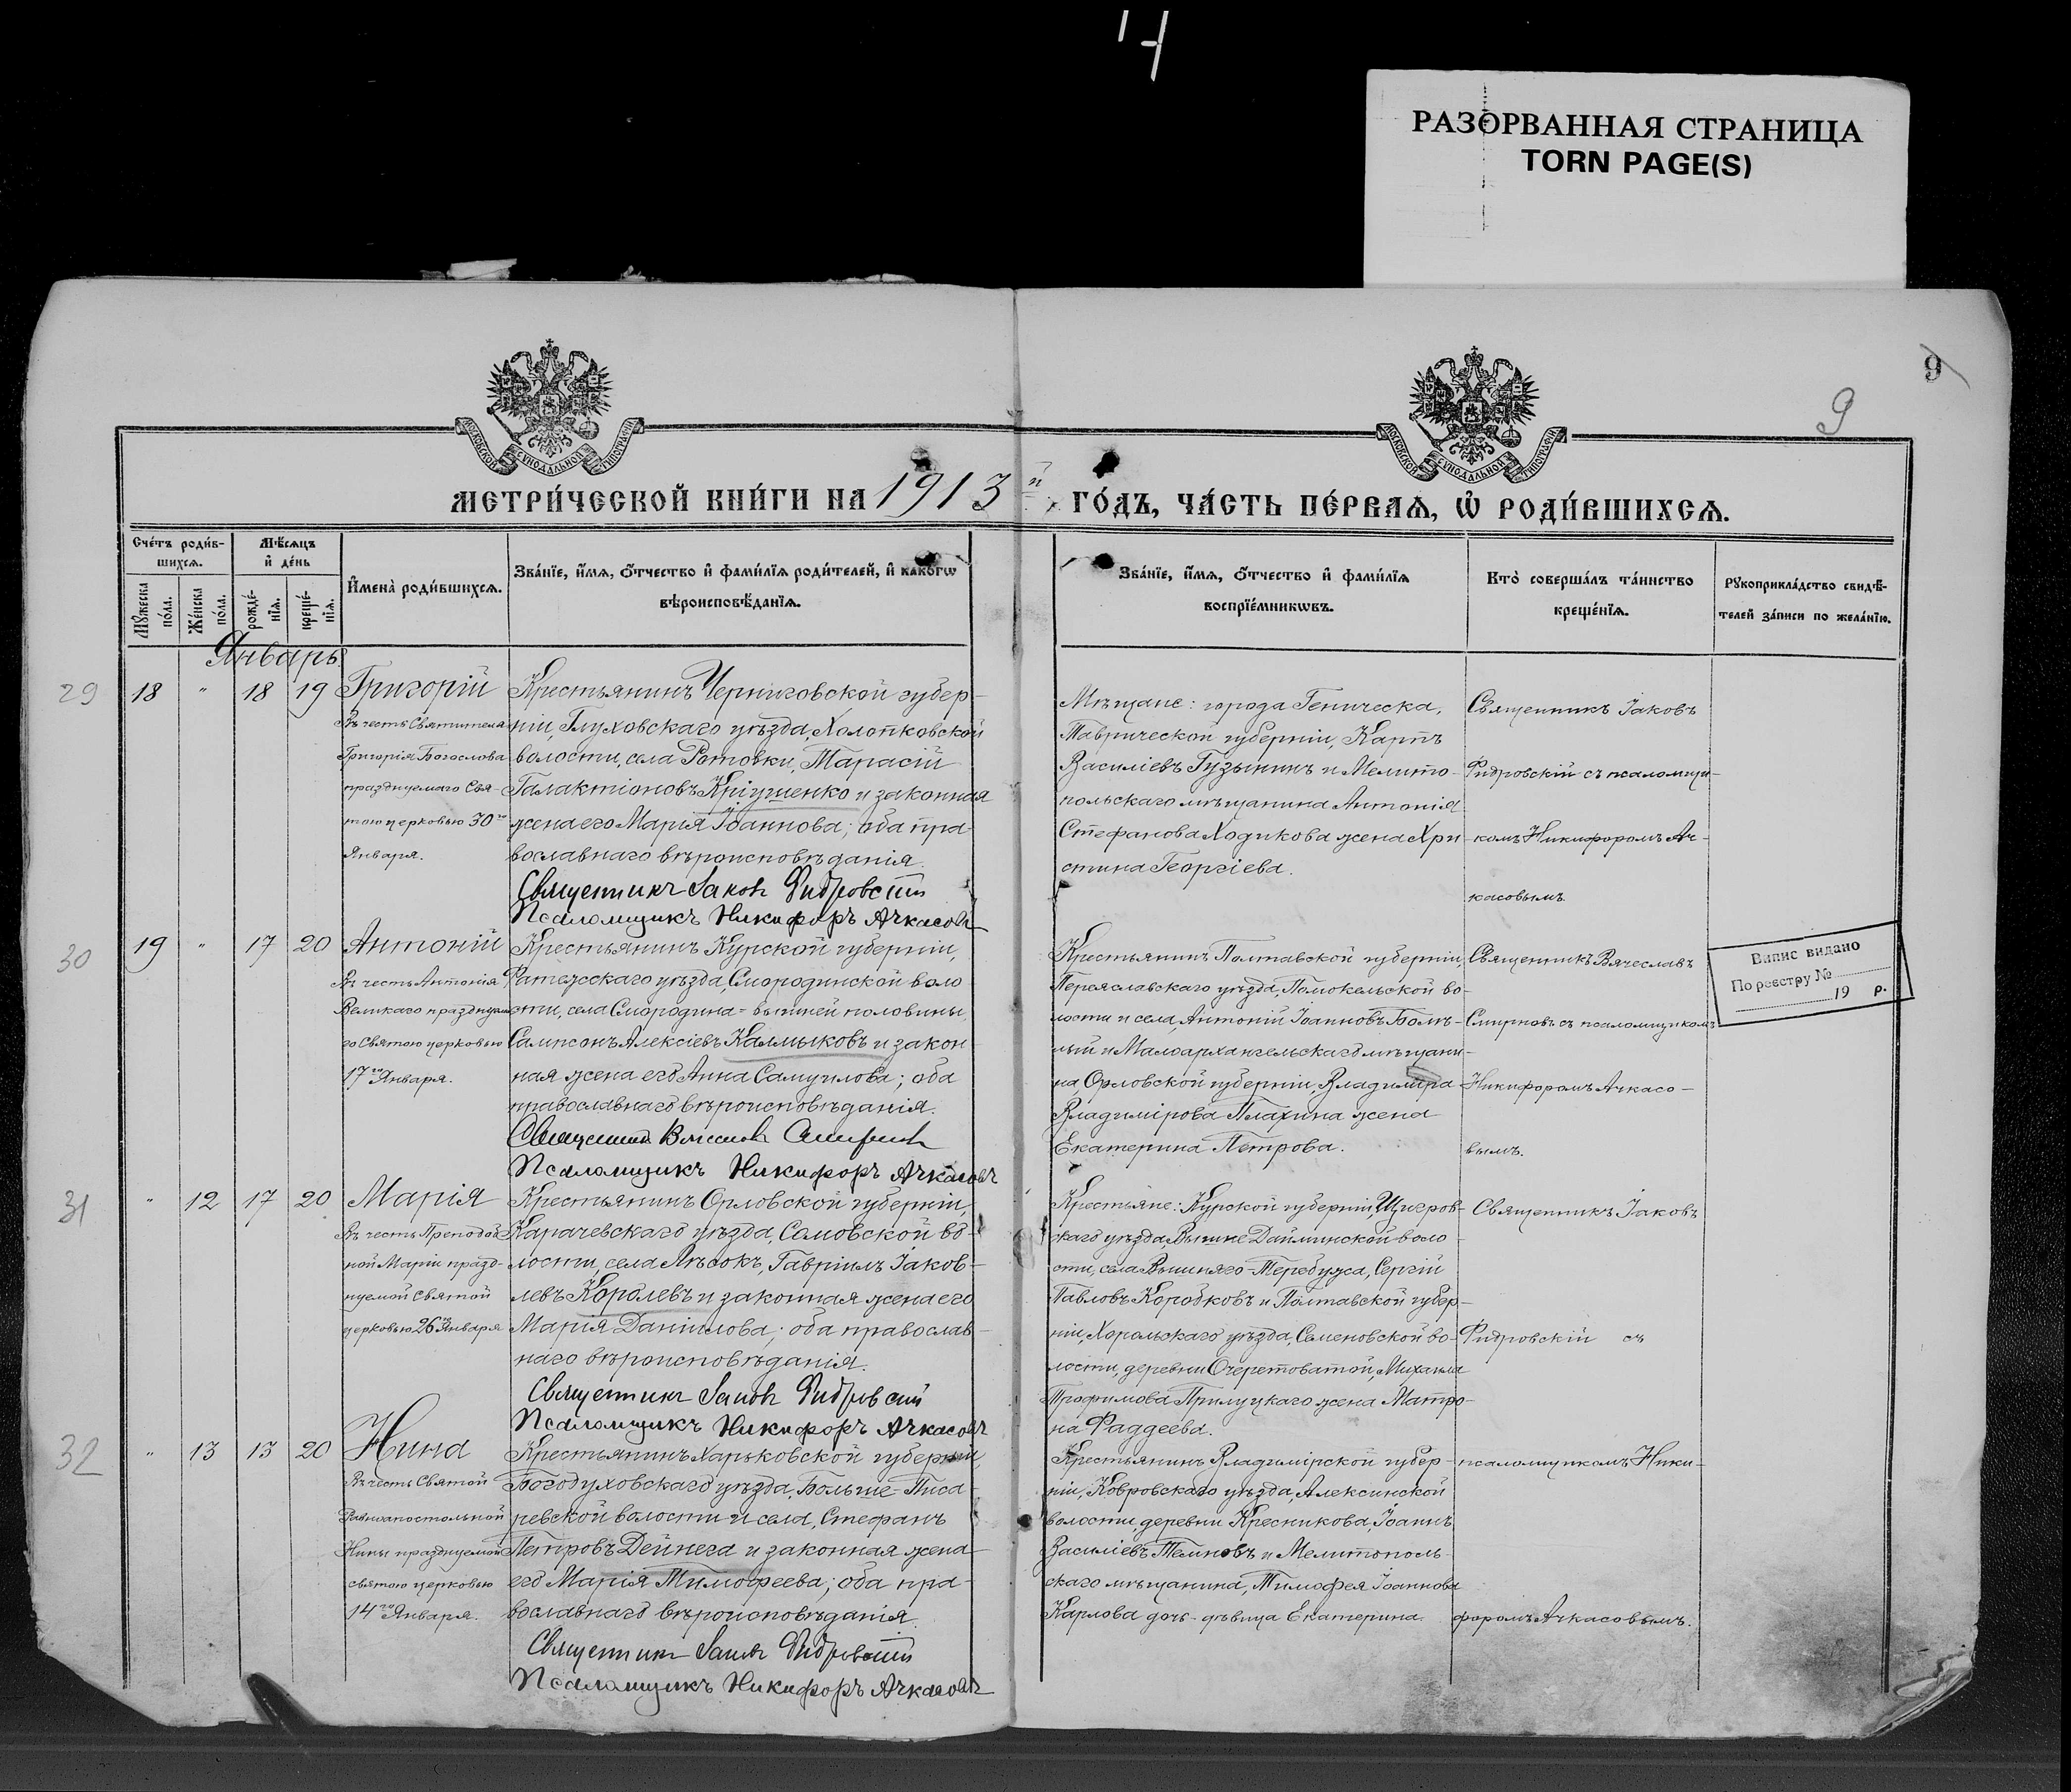 РАЗОРВАННАЯ СТРАНИЦА
TORN PAGE(S)
9
9
МОСКОВСКОЙ СѴНОДАЛЬНОЙ ТИПОГРАФІИ
МОСКОВСКОЙ СѴНОДАЛЬНОЙ ТИПОГРАФІИ
МЕТРИ́ЧЕСКОЙ КНИ́ГИ НА 1913й ГО́ДЪ, ЧА́СТЬ ПЕ́РВАѦ, Ѡ҆ РОДИ́ВШИХСѦ.
Сче́тъ роди́в-
шихсѧ.
Мꙋ́жеска по́ла.
Же́нска по́ла.
Мѣ́сѧцъ
и҆ де́нь
рожде́-
нїѧ.
креще́-
нїѧ.
И҆мена̀ роди́вшихсѧ.
Зва́нїе, и҆́мѧ, ѻ҆́тчество и҆ фами́лїѧ роди́телей, и҆ како́гѡ
вѣроисповѣ́данїѧ.
Зва́нїе, и҆́мѧ, ѻ҆́тчество и҆ фами́лїѧ
воспрїе́мникѡвъ.
Кто̀ соверша́лъ та́инство
креще́нїѧ.
Рꙋкоприкла́дство свидѣ́-
телей за́писи по жела́нїю.
Январь
29
18 " 18 19
Григорій
Въ честь Святителя
Григорія Богослова
празднуемаго Свя-
тою церковью 30го
Января.
Крестьянинъ Черниговской губер-
ніи, Глуховскаго уѣзда, Холопковской
волости, села Ротовки, Тарасій
Галактіоновъ Кріушенко и законная
жена его Марія Іоаннова; оба пра-
вославнаго вѣроисповѣданія.
Священникъ Іаковъ Фидровскій
Псаломщикъ Никифоръ Ачкасовъ
Мѣщане: города Геническа,
Таврической губерніи, Карпъ
Василіевъ Гузынинъ и Мелито-
польскаго мѣщанина Антонія
Стефанова Ходикова жена Хри-
стина Георгіева.
Священникъ Іаковъ
Фидровскій съ псаломщи-
комъ Никифоромъ Ач-
касовымъ.
30
19 " 17 20
Антоній
Въ честь Антонія
Великаго празднуема-
го Святою церковью
17го Января.
Крестьянинъ Курской губерніи,
Фатежскаго уѣзда, Смородинской воло-
сти, села Смородина-вышней половины,
Сампсонъ Алексіевъ Калмыковъ и закон-
ная жена его Анна Самуилова; оба
православнаго вѣроисповѣданія.
Священникъ Вячеславъ Смирновъ
Псаломщикъ Никифоръ Ачкасовъ
Крестьянинъ Полтавской губерніи,
Переяславскаго уѣзда, Помокельской во-
лости и села, Антоній Іоанновъ
и Малоархангельскаго мѣщани-
на, Орловской губерніи, Владиміра
Владимірова Плахина жена
Екатерина Петрова.
Священникъ Вячеславъ
Смирновъ съ псаломщикомъ
Никифоромъ Ачкасо-
вымъ.
Випис видано
По реєстру №
19 р.
31
" 12 17 20
Марія
Въ честь Преподоб-
ной Маріи празд-
нуемой Святой
церковью 26го Января
Крестьянинъ Орловской губерніи,
Карачевскаго уѣзда, Самовской во-
лости, села Лѣсокъ, Гавріилъ Іаков-
левъ Королевъ и законная жена его
Марія Даніилова; оба православ-
наго вѣроисповѣданія.
Священникъ Іаковъ Фидровскій
Псаломщикъ Никифоръ Ачкасовъ
Крестьяне: Курской губерніи, Щигров-
скаго уѣзда, Вышне-Дайминской воло-
сти, села Вышняго-Теребужа, Сергій
Павловъ Коробковъ и Полтавской губер-
ніи, Хорольскаго уѣзда, Семеновской во-
лости, деревни Очеретоватой, Михаила
Трофимова Прилуцкаго жена Матро-
на Фаддеева.
Священникъ Іаковъ
Фидровскій съ
32
" 13 13 20
Нина
Въ честь Святой
Равноапостольной
Нины празднуемой
святою церковью
14го Января.
Крестьянинъ Харьковской губерніи,
Богодуховскаго уѣзда, Больше-Писа-
ревской волости и села, Стефанъ
Петровъ Дейнега и законная жена
его Марія Тимофеева; оба пра-
вославнаго вѣроисповѣданія.
Священникъ Іаковъ Фидровскій
Псаломщикъ Никифоръ Ачкасовъ
Крестьянинъ Владимірской губер-
ніи, Ковровскаго уѣзда, Алексинской
волости, деревни Кресникова, Іоаннъ
Василіевъ Темновъ и Мелитополь-
скаго мѣщанина, Тимофея Іоаннова
Карлова дочь-дѣвица Екатерина.
псаломщикомъ Ники-
форомъ Ачкасовымъ.